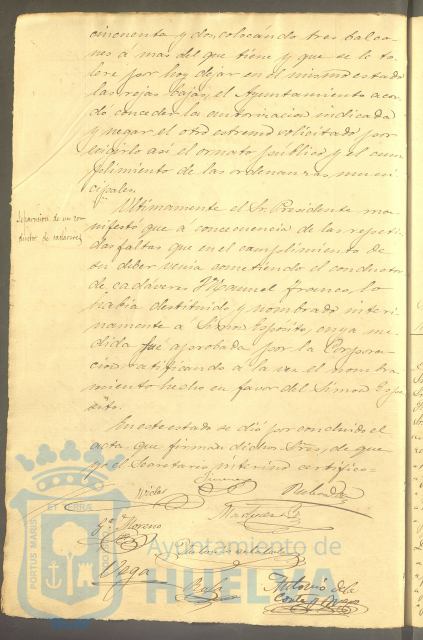 cincuenta y dos, colocando tres balco-
nes á mas del que tiene y que se le to-
lere por hoy dejar en el mismo estado
las rejas bajas, el Ayuntamiento acor-
dó conceder la autorizacion indicada
y negar el otro estremo solicitado por
exigirlo así el ornato público y el cum-
plimiento de las ordenanzas muni-
cipales.
Separacion de un con-
ductor de cadáveres
Ultimamente el Sr. Presidente ma-
nifestó que á consecuencia de las repeti-
das faltas que en el cumplimiento de
su deber venia cometiendo el conductor
de cadáveres Manuel Franco, lo
habia destituido y nombrado interi-
namente á Simon Expósito, cuya me-
dida fué aprobada por la Corpora-
cion ratificando á la vez el nombra-
miento hecho en favor del Simon Expó-
sito.
En este estado se dió por concluido el
acta que firman dichos Sres, de que
yo el Secretario interino certifico.
Moreno
Vega
Antonio de la
Corte y
PORTUS MARIS ET TERRAE CUSTODIA
Ayuntamiento de
HUELVA